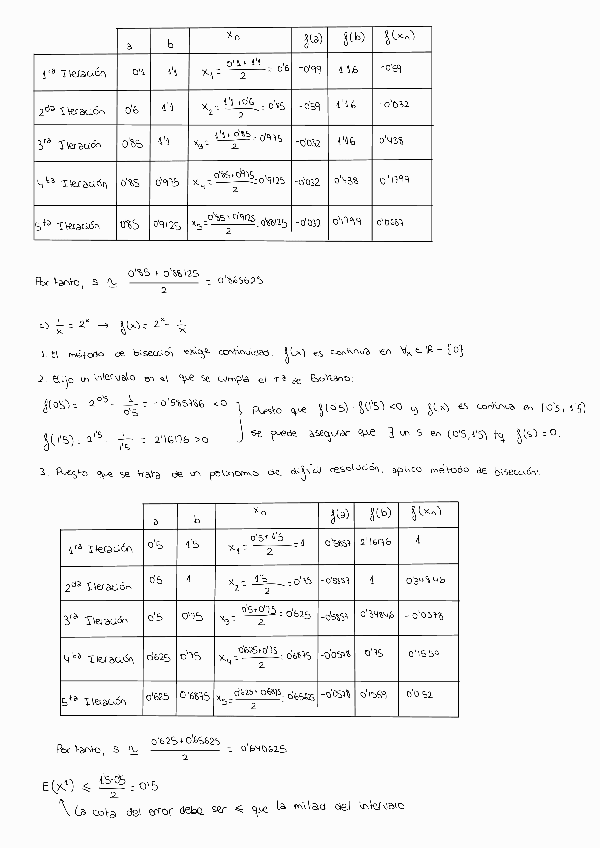 a b xn f(a) f(b) f(xn)
1ra Iteración 0'1 1'1 x1 = (0'1 + 1'1)/2 = 0'6 -0'99 1'16 -0'59
2da Iteración 0'6 1'1 x2 = (1'1 + 0'6)/2 = 0'85 -0'59 1'16 -0'032
3ra Iteración 0'85 1'1 x3 = (1'1 + 0'85)/2 = 0'975 -0'032 1'16 0'438
4ta Iteración 0'85 0'975 x4 = (0'85 + 0'975)/2 = 0'9125 -0'032 0'438 0'1799
5ta Iteración 0'85 0'9125 x5 = (0'85 + 0'9125)/2 = 0'88125 -0'032 0'1799
Por tanto, s ≃ (0'85 + 0'88125)/2 = 0'865625
c) 1/x = 2^x → f(x) = 2^x - 1/x
1. El método de bisección exige continuidad. f(x) es continua en ∀x ∈ R - {0}
2. Elijo un intervalo en el que se cumpla el Tª de Bolzano:
f(0'5) = 2^0'5 - 1/0'5 = -0'585786 < 0 } Puesto que f(0'5) · f(1'5) < 0 y f(x) es continua en (0'5, 1'5)
f(1'5) = 2^1'5 - 1/1'5 = 2'16176 > 0 se puede asegurar que ∃ un s en (0'5, 1'5) tq f(s) = 0.
3. Puesto que se trata de un polinomio de difícil resolución, aplico método de bisección:
a b xn f(a) f(b) f(xn)
1ra Iteración 0'5 1'5 x1 = (0'5 + 1'5)/2 = 1 0'5857 2'16176 1
2da Iteración 0'5 1 x2 = 1'5/2 = 0'75 -0'5857 1 0'34846
3ra Iteración 0'5 0'75 x3 = (0'5 + 0'75)/2 = 0'625 -0'5857 0'34846 -0'0578
4ta Iteración 0'625 0'75 x4 = (0'625 + 0'75)/2 = 0'6875 -0'0578 0'75 0'1559
5ta Iteración 0'625 0'6875 x5 = (0'625 + 0'6875)/2 = 0'65625 -0'0578 0'1559 0'052
Por tanto, s ≃ (0'625 + 0'65625)/2 = 0'640625
E(x1) ≤ (1'5-0'5)/2 = 0'5
La cota del error debe ser ≤ que la mitad del intervalo